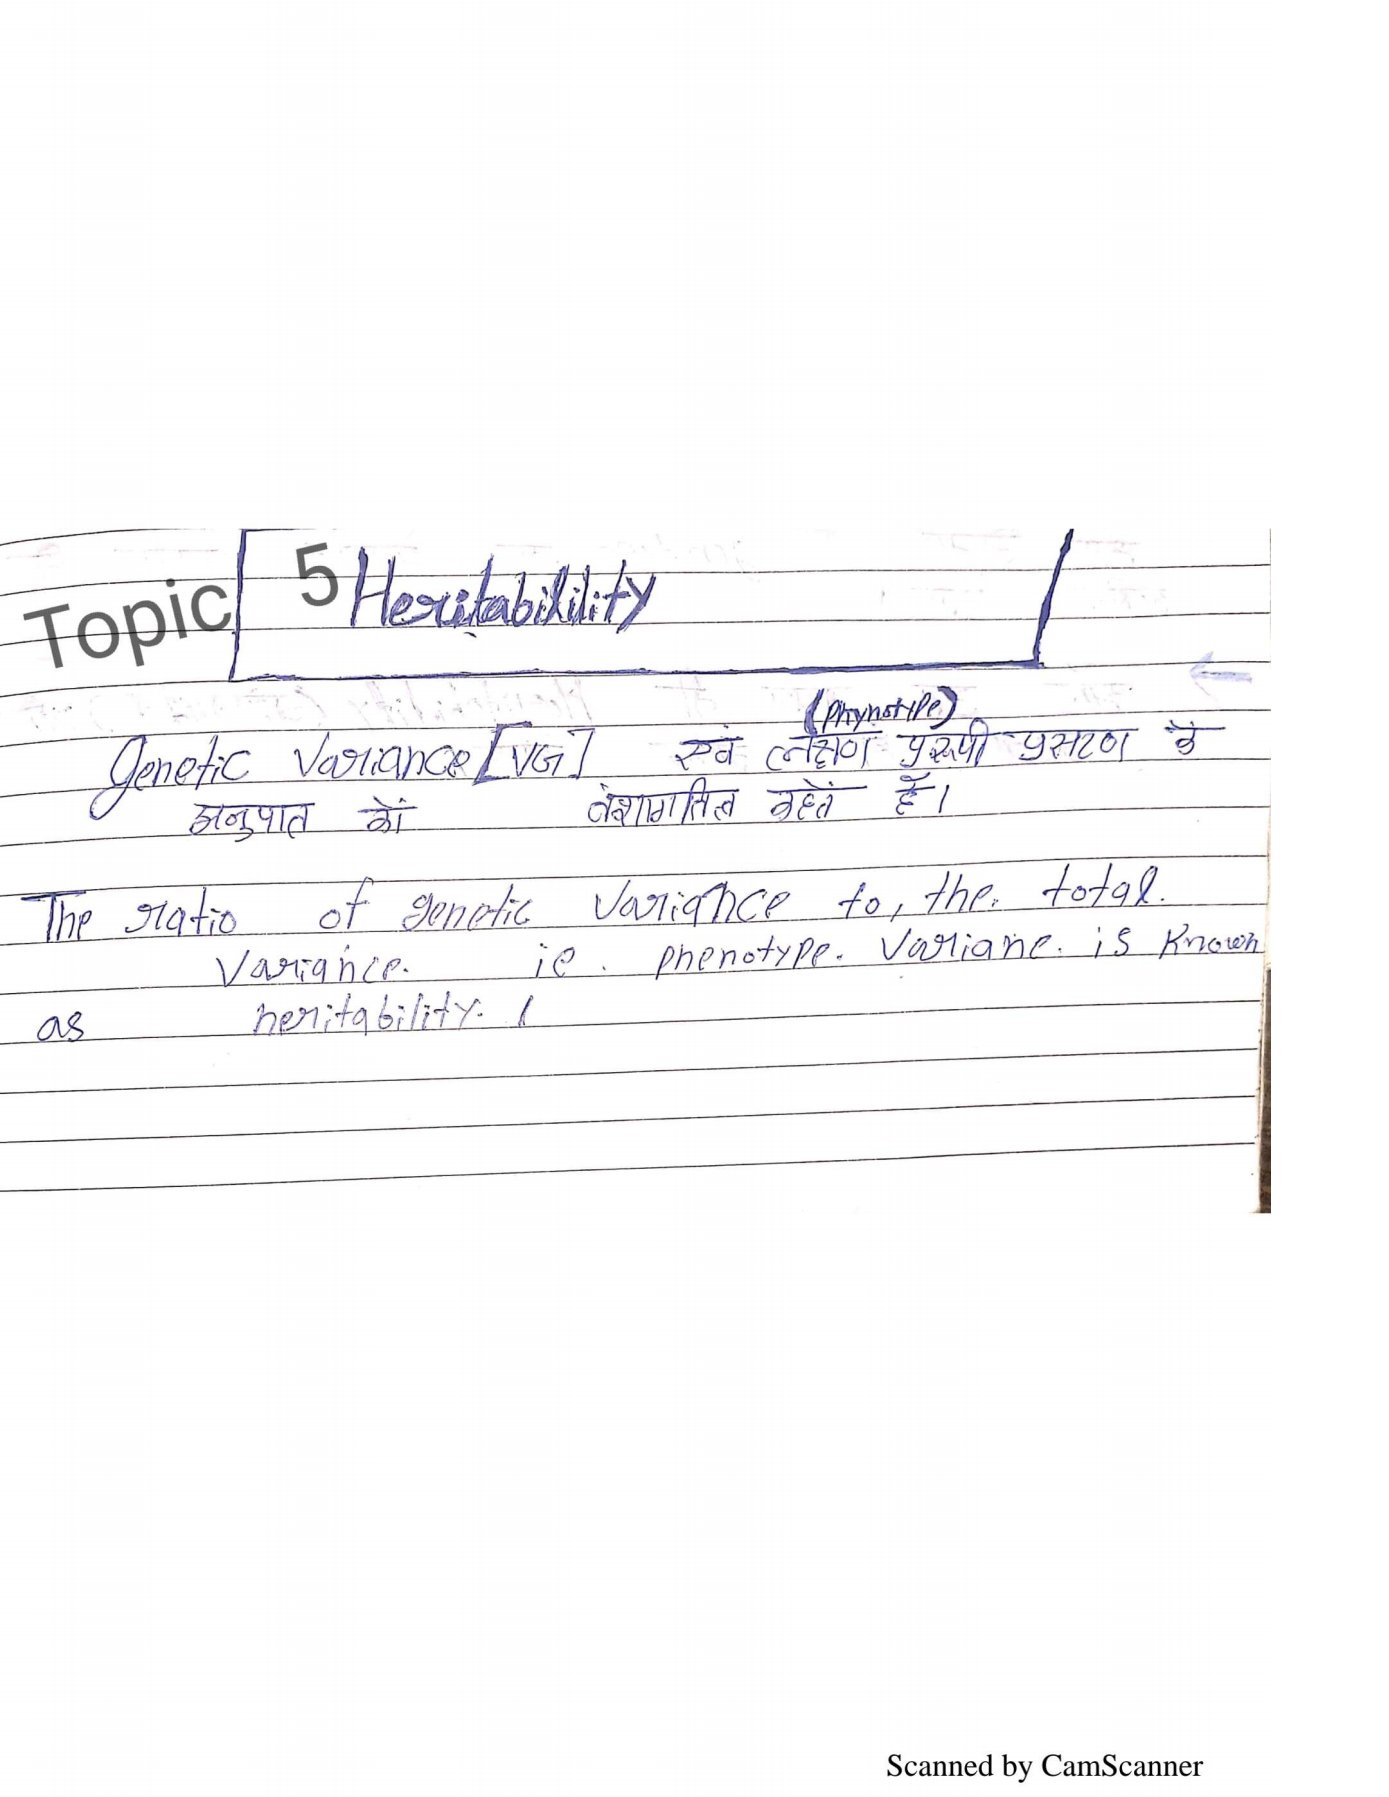 Topic 5 Heritabilility
(Phynotype)
Genetic Variance [VG] एवं लक्षण प्ररूपी प्रसरण के
अनुपात को वंशागतित्व कहते हैं।
The ratio of genetic Variance to, the. total.
Variance. ie. phenotype. Variane. is Known
as heritability. |
Scanned by CamScanner